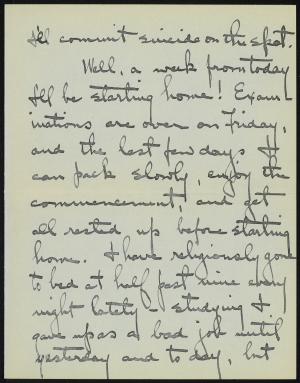 I'll commit suicide on the spot.
Well, a week from today
I'll be starting home! Exam-
inations are over on Friday,
and the last few days I
can pack slowly, enjoy the
commencement, and get
all rested up before starting
home. I have religiously gone
to bed at half past nine every
night lately - studying I
gave up as a bad job until
yesterday and to day, but